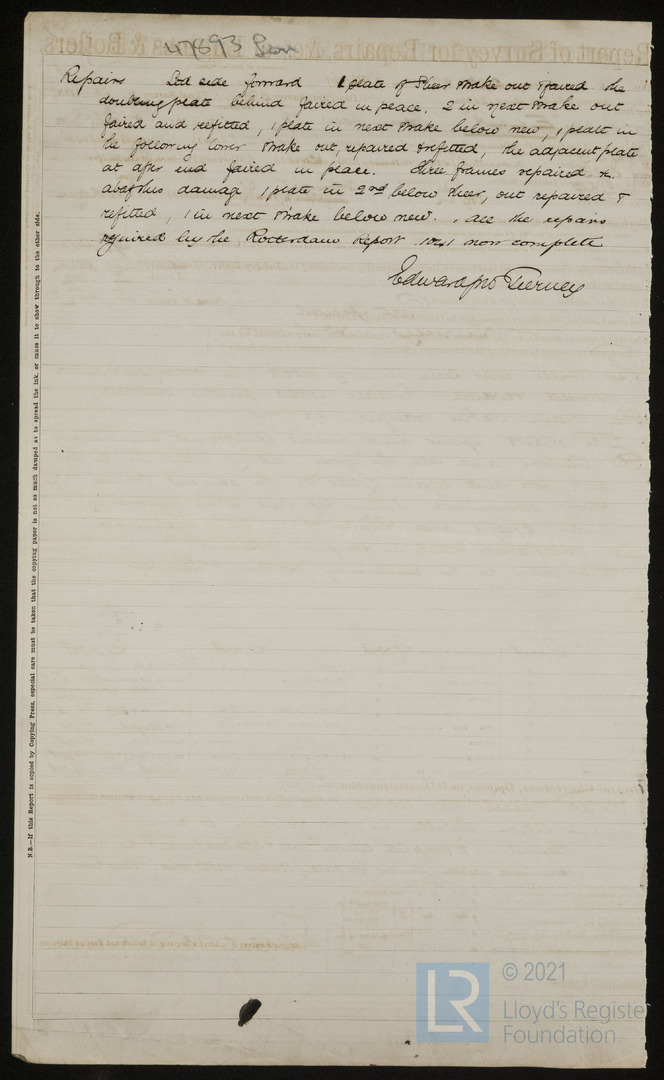 47693 Lon
Repairs Stbd side forward 1 plate of Sheer Strake out & faired the
doubling plate behind faired in peace, 2 in next strake out
faired and refitted, 1 plate in next strake below new, 1 plate in
the following lower strake out, repaired & refitted, the adjacent plate
at after end faired in place. Three frames repaired &.
abaft this damage 1 plate in 2nd below sheer, out repaired &
refitted, 1 in next strake below new. All the repairs
required by the Rotterdam Report now complete
Tierney
N.B.—If this Report is copied by Copying Press, especial care must be taken that the copying paper is not so much damped as to spread the ink, or cause it to show through to the other side.
LR © 2021
Lloyd's Register
Foundation